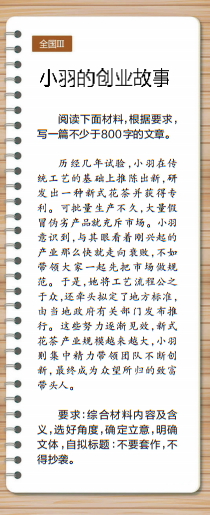 全国Ⅲ
小羽的创业故事
阅读下面材料,根据要求,
写一篇不少于800字的文章。
历经几年试验,小羽在传
统工艺的基础上推陈出新,研
发出一种新式花茶并获得专
利。可批量生产不久,大量假
冒伪劣产品就充斥市场。小羽
意识到,与其眼看着刚兴起的
产业那么快就走向衰败,不如
带领大家一起先把市场做规
范。于是,她将工艺流程公之
于众,还牵头拟定了地方标准,
由当地政府有关部门发布推
行。这些努力逐渐见效,新式
花茶产业规模越来越大,小羽
则集中精力带领团队不断创
新,最终成为众望所归的致富
带头人。
要求:综合材料内容及含
义,选好角度,确定立意,明确
文体,自拟标题;不要套作,不
得抄袭。